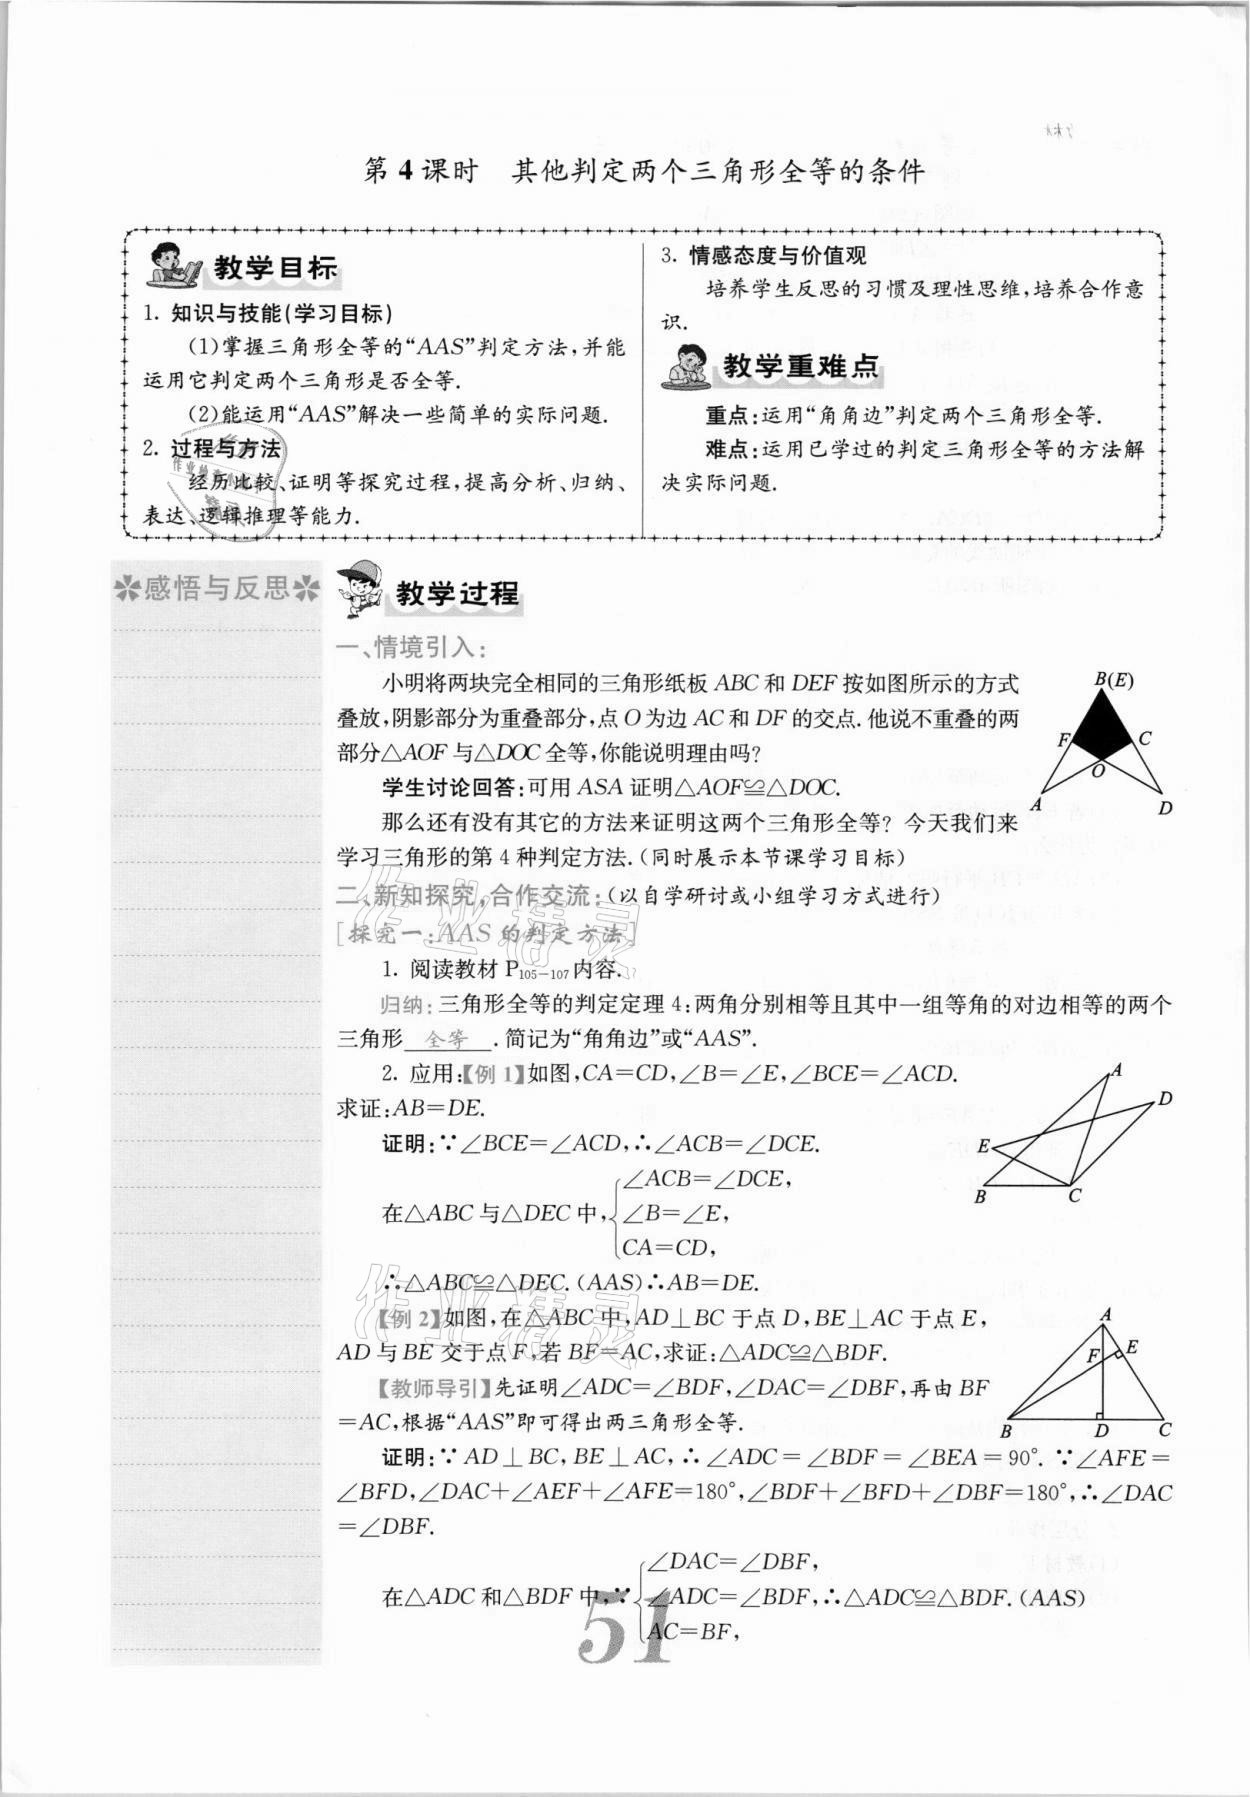 第 4 课时　其他判定两个三角形全等的条件
教学目标
1. 知识与技能(学习目标)
(1)掌握三角形全等的“AAS”判定方法,并能
运用它判定两个三角形是否全等.
(2)能运用“AAS”解决一些简单的实际问题.
2. 过程与方法
经历比较、证明等探究过程,提高分析、归纳、
表达、逻辑推理等能力.
3. 情感态度与价值观
培养学生反思的习惯及理性思维,培养合作意
识.
教学重难点
重点:运用“角角边”判定两个三角形全等.
难点:运用已学过的判定三角形全等的方法解
决实际问题.
感悟与反思
教学过程
一、情境引入:
小明将两块完全相同的三角形纸板 ABC 和 DEF 按如图所示的方式
叠放,阴影部分为重叠部分,点 O 为边 AC 和 DF 的交点. 他说不重叠的两
部分△AOF 与△DOC 全等,你能说明理由吗?
学生讨论回答:可用 ASA 证明△AOF≌△DOC.
那么还有没有其它的方法来证明这两个三角形全等? 今天我们来
学习三角形的第 4 种判定方法.(同时展示本节课学习目标)
B(E)
F
C
O
A
D
二、新知探究,合作交流:(以自学研讨或小组学习方式进行)
[探究一:AAS 的判定方法]
1. 阅读教材 P105-107 内容.
归纳:三角形全等的判定定理 4:两角分别相等且其中一组等角的对边相等的两个
三角形 全等 . 简记为“角角边”或“AAS”.
2. 应用:【例 1】如图,CA=CD,∠B=∠E,∠BCE=∠ACD.
求证:AB=DE.
证明:∵∠BCE=∠ACD,∴∠ACB=∠DCE.
∠ACB=∠DCE,
在△ABC 与△DEC 中,
∠B=∠E,
CA=CD,
∴△ABC≌△DEC.(AAS)∴AB=DE.
A
D
E
B
C
【例 2】如图,在△ABC 中,AD⊥BC 于点 D,BE⊥AC 于点 E,
AD 与 BE 交于点 F,若 BF=AC,求证:△ADC≌△BDF.
【教师导引】先证明∠ADC=∠BDF,∠DAC=∠DBF,再由 BF
=AC,根据“AAS”即可得出两三角形全等.
A
F
E
B
D
C
证明:∵AD⊥BC,BE⊥AC,∴∠ADC=∠BDF=∠BEA=90°. ∵∠AFE=
∠BFD,∠DAC+∠AEF+∠AFE=180°,∠BDF+∠BFD+∠DBF=180°,∴∠DAC
=∠DBF.
∠DAC=∠DBF,
在△ADC 和△BDF 中,∵
∠ADC=∠BDF,∴△ADC≌△BDF.(AAS)
AC=BF,
51
作业精灵
作业精灵